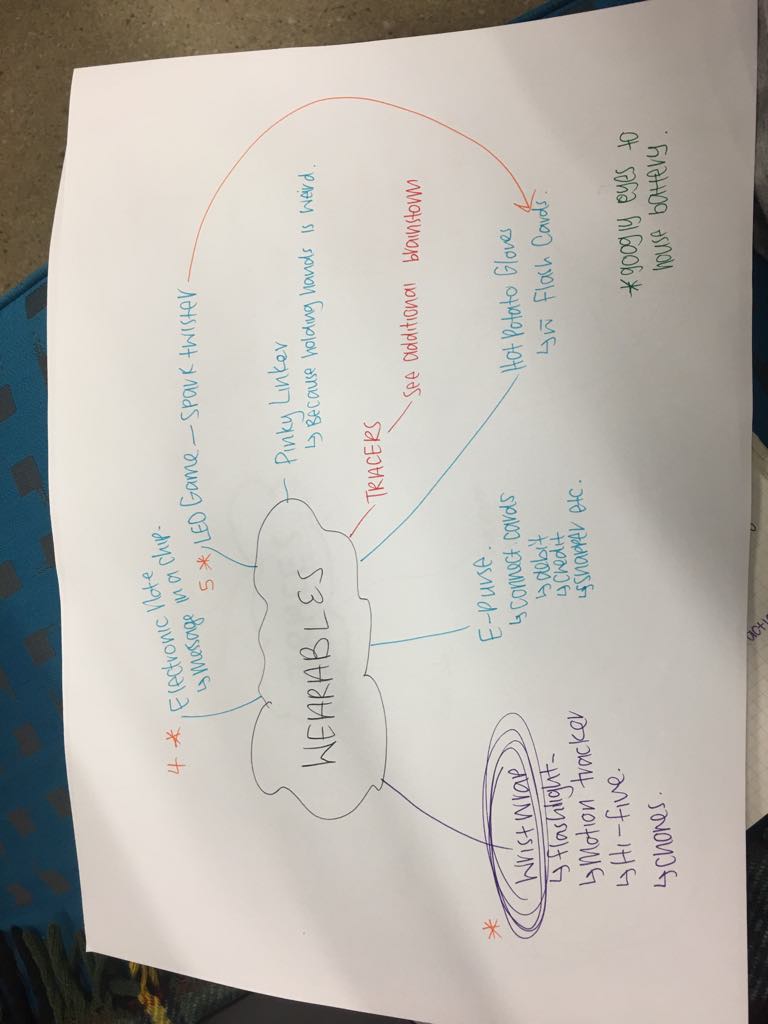 4 * Electronic Note
↳ Message in a chip.
5 * LED Game — SPARK TWISTER
Pinky Linker
↳ Because holding hands is weird.
TRACERS — see additional brainstorm
WEARABLES
Hot Potato Gloves
↳ w̄ Flash Cards.
E-Purse.
↳ Connect cards
↳ debit
↳ Credit
↳ Shopper etc.
* Wrist Wrap
↳ Flashlight-
↳ Motion tracker
↳ Hi-five.
↳ chores.
*googly eyes to
house battery.